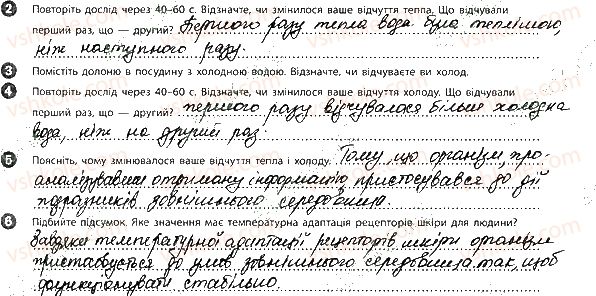 2 Повторіть дослід через 40–60 с. Відзначте, чи змінилося ваше відчуття тепла. Що відчували
перший раз, що — другий? Першого разу тепла вода була теплішою,
ніж наступного разу.
3 Помістіть долоню в посудину з холодною водою. Відзначте, чи відчуваєте ви холод.
4 Повторіть дослід через 40–60 с. Відзначте, чи змінилося ваше відчуття холоду. Що відчували
перший раз, що — другий? першого разу відчувалося більш холодна
вода, ніж на другий раз.
5 Поясніть, чому змінювалося ваше відчуття тепла і холоду. Тому що організм, про-
аналізувавши отриману інформацію пристосувався до дії
подразників зовнішнього середовища.
6 Підбийте підсумок. Яке значення має температурна адаптація рецепторів шкіри для людини?
Завдяки температурної адаптації рецепторів шкіри організм
пристосовується до умов зовнішнього середовища так, щоб
функціонувати стабільно.